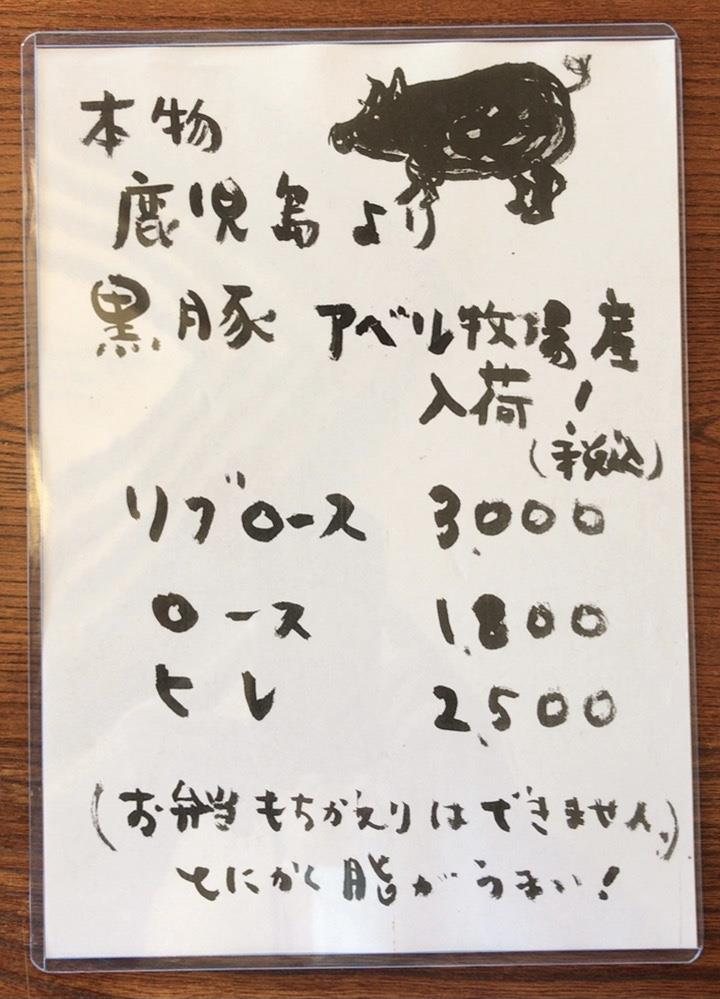 本物
鹿児島より
黒豚 アベル牧場産
入荷！
（税込）
リブロース 3,000
ロース 1,800
ヒレ 2,500
（お弁当もちかえりはできません。）
とにかく脂がうまい！